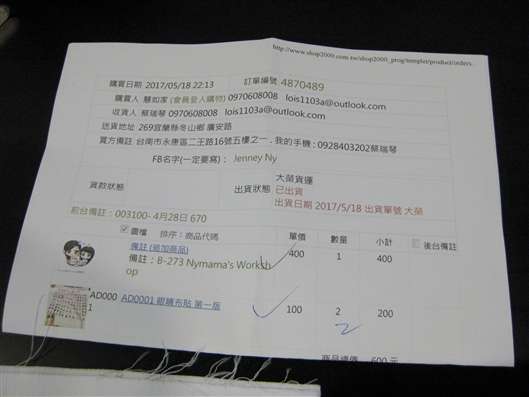 http://www.shop2000.com.tw/shop2000_prog/templet/product/orders.
購賣日期 2017/05/18 22:13 訂單編號 4870489
購賣人 慧如家 (會員登入購物) 0970608008 lois1103a@outlook.com
收貨人 蔡瑞琴 0970608008 lois1103a@outlook.com
送貨地址 269宜蘭縣冬山鄉 廣安路
買方備註 台南市永康區二王路16號五樓之一 . 我的手機 : 0928403202蔡瑞琴
FB名字(一定要寫): Jenney Ny
貨款狀態
出貨狀態
大榮貨運
已出貨
出貨日期 2017/5/18 出貨單號 大榮
前台備註 : 003100- 4月28日 670
圖檔 排序 : 商品代碼 單價 數量 小計 後台備註
備註 (追加商品)
備註 : B-273 Nymama's Workshop
400 1 400
AD0001 AD0001 眼睛布貼 第一版 100 2 200
2
商品總價 600 元